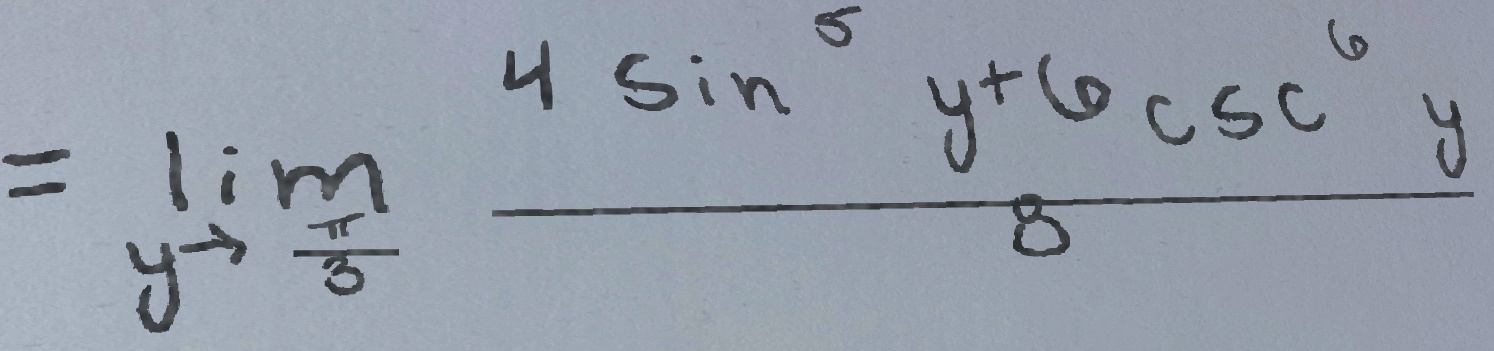 = \lim_{y \to \frac{\pi}{3}} \frac{4 \sin^5 y + 6 \csc^6 y}{8}